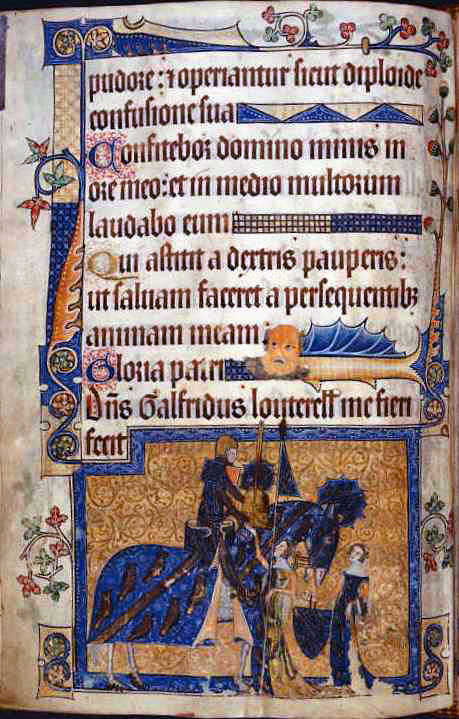 pudore: ⁊ operiantur sicut diploide
confusione sua
Confitebor domino nimis in
ore meo: et in medio multorum
laudabo eum
Qui astitit a dextris pauperis:
ut saluam faceret a persequentibꝫ
animam meam:
Gloria patri
Dn̄s Galfridus louterell me fieri
fecit